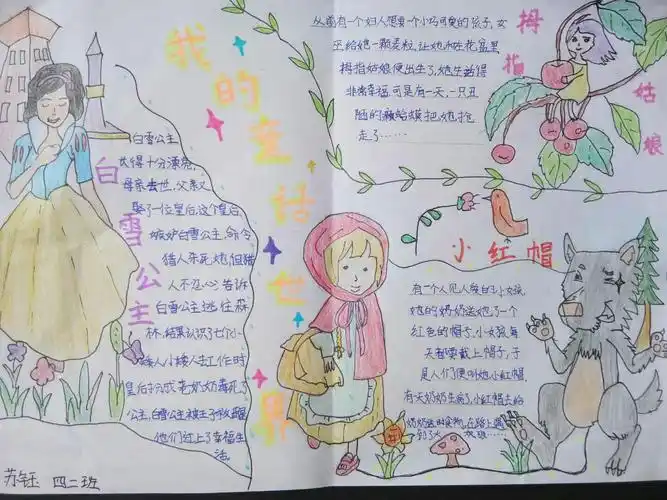 我的童话世界
白雪公主
白雪公主
长得十分漂亮,
母亲去世,父亲又
娶了一位皇后,这个皇后
嫉妒白雪公主,命令
猎人杀死她,但猎
人不忍心,告诉
白雪公主逃往森
林,结果认识了七个小
矮人,小矮人去工作时
皇后扮成老奶奶毒死了
公主,白雪公主被王子救醒
他们过上了幸福生
活。
拇指姑娘
从前有一个妇人想要一个小巧可爱的孩子,女
巫给她一颗麦粒,让她种在花盆里
拇指姑娘便出生了,她生活得
非常幸福,可是有一天,一只丑
陋的癞蛤蟆把她抢
走了……
小红帽
有一个人见人爱的小女孩
她的奶奶送她了一个
红色的帽子,小女孩每
天都要戴上帽子,于
是人们便叫她小红帽
有天奶奶生病了,小红帽去给
奶奶送食物,在路上遇
到了大灰狼……
苏钰 四二班